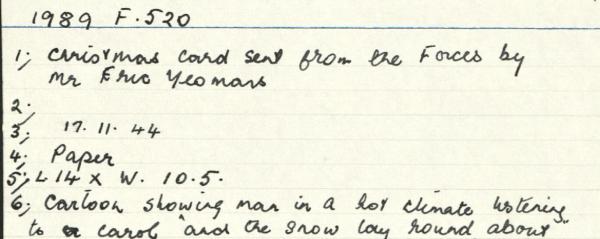 1989 F.520
1; Christmas card sent from the Forces by
Mr Eric Yeomans
2.
3; 17. 11. 44
4; Paper
5; L 14 x W. 10.5.
6; Cartoon showing man in a hot climate listening
to a carol "and the snow lay round about"